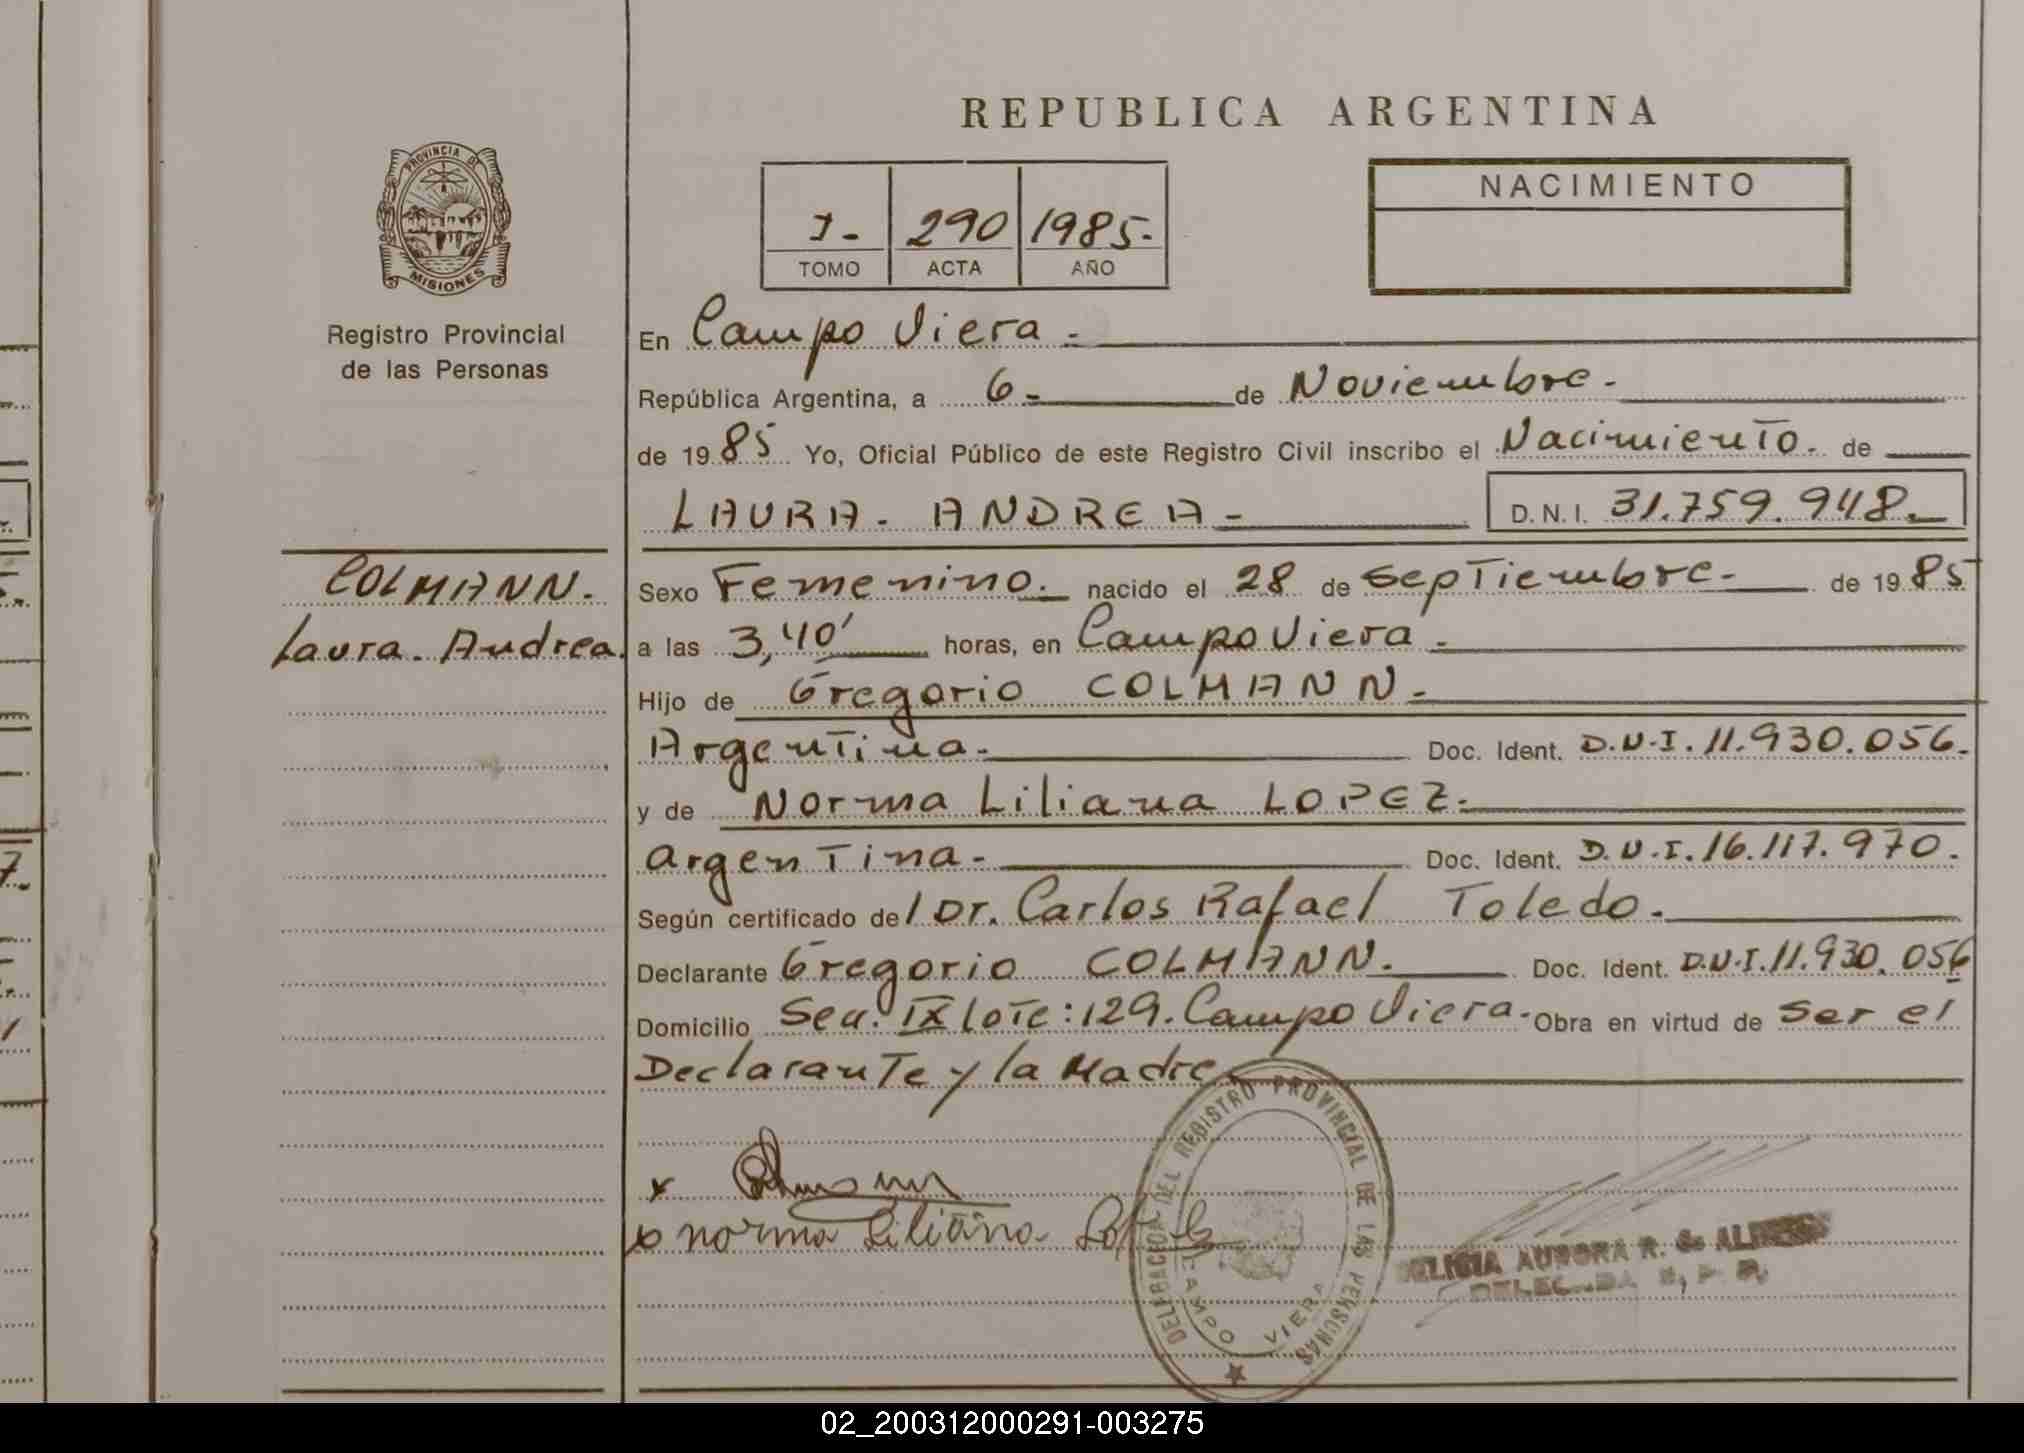 REPUBLICA ARGENTINA
PROVINCIA DE
MISIONES
Registro Provincial
de las Personas
I- 290 1985-
TOMO ACTA AÑO
NACIMIENTO
En Campo Viera.-
República Argentina, a 6- de Noviembre.-
de 1985 Yo, Oficial Público de este Registro Civil inscribo el Nacimiento. de
LAURA. ANDREA- D.N.I. 31.759.948.-
COLMANN.
Laura. Andrea.
Sexo Femenino.- nacido el 28 de Septiembre.- de 1985
a las 3,40' horas, en Campo Viera.-
Hijo de Gregorio COLMANN.-
Argentina.- Doc. Ident. D.N.I. 11.930.056.
y de Norma Liliana LOPEZ.-
argentina.- Doc. Ident. D.N.I. 16.117.970.
Según certificado del Dr. Carlos Rafael Toledo.-
Declarante Gregorio COLMANN.- Doc. Ident. D.N.I. 11.930.056
Domicilio Secc. IX lote: 129. Campo Viera.- Obra en virtud de ser el
Declarante y la Madre
x
x norma Liliana
DELEGACION DEL REGISTRO PROVINCIAL DE LAS PERSONAS
CAMPO VIERA
AURORA R. de
02_200312000291-003275